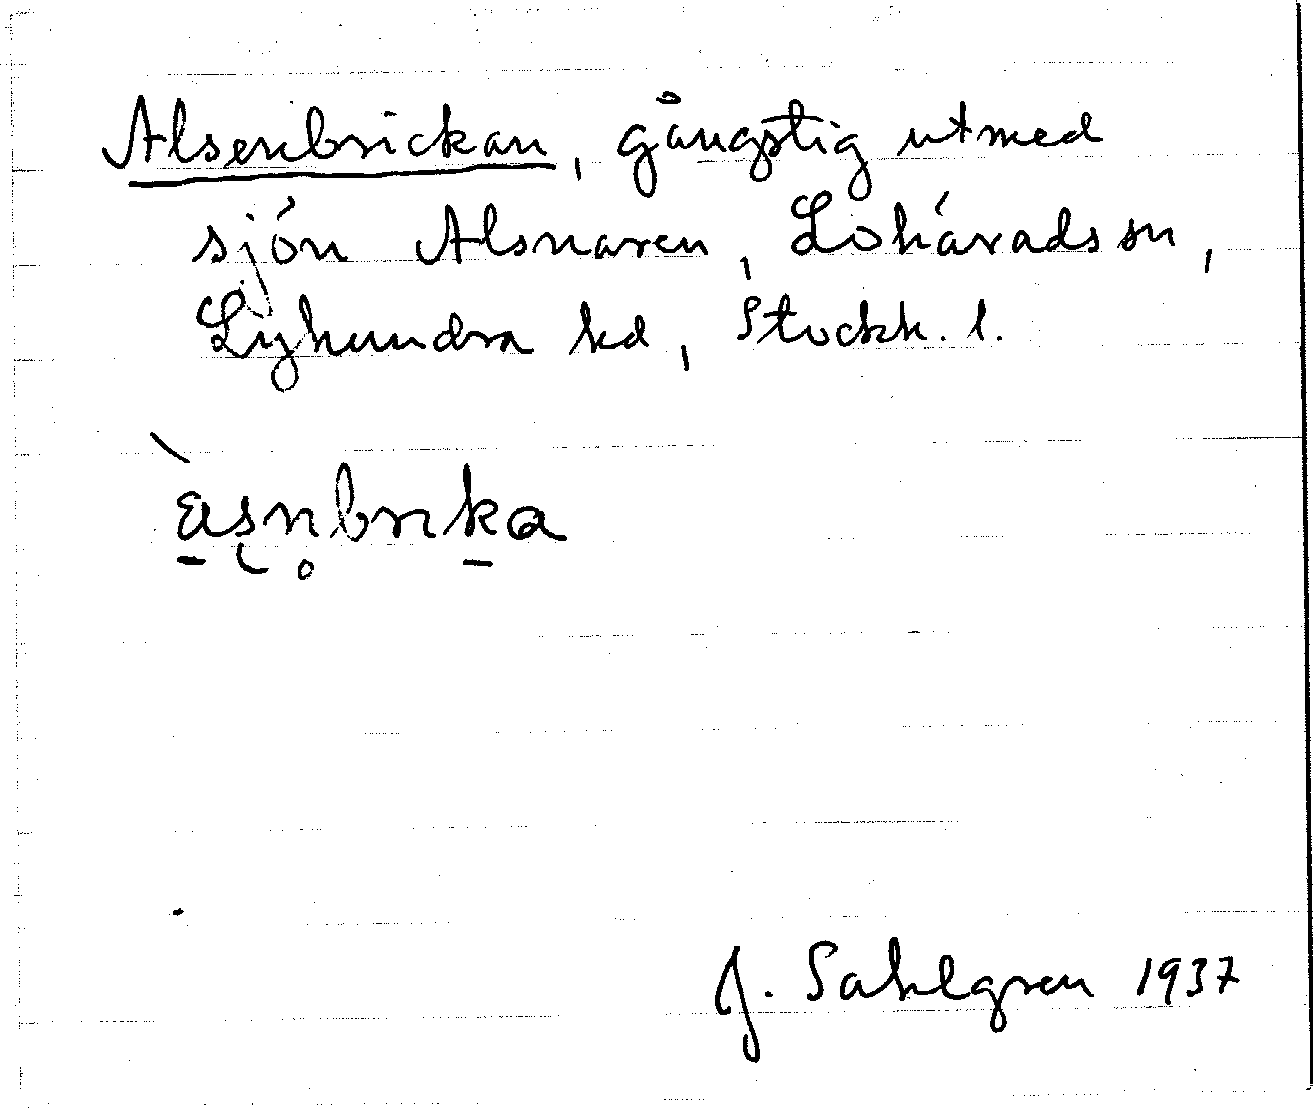 Alsenbrickan, gångstig utmed
sjön Alsnaren, Lohäradssn,
Lyhundra hd, Stockh. l.
àsn̥brika
J. Sahlgren 1937